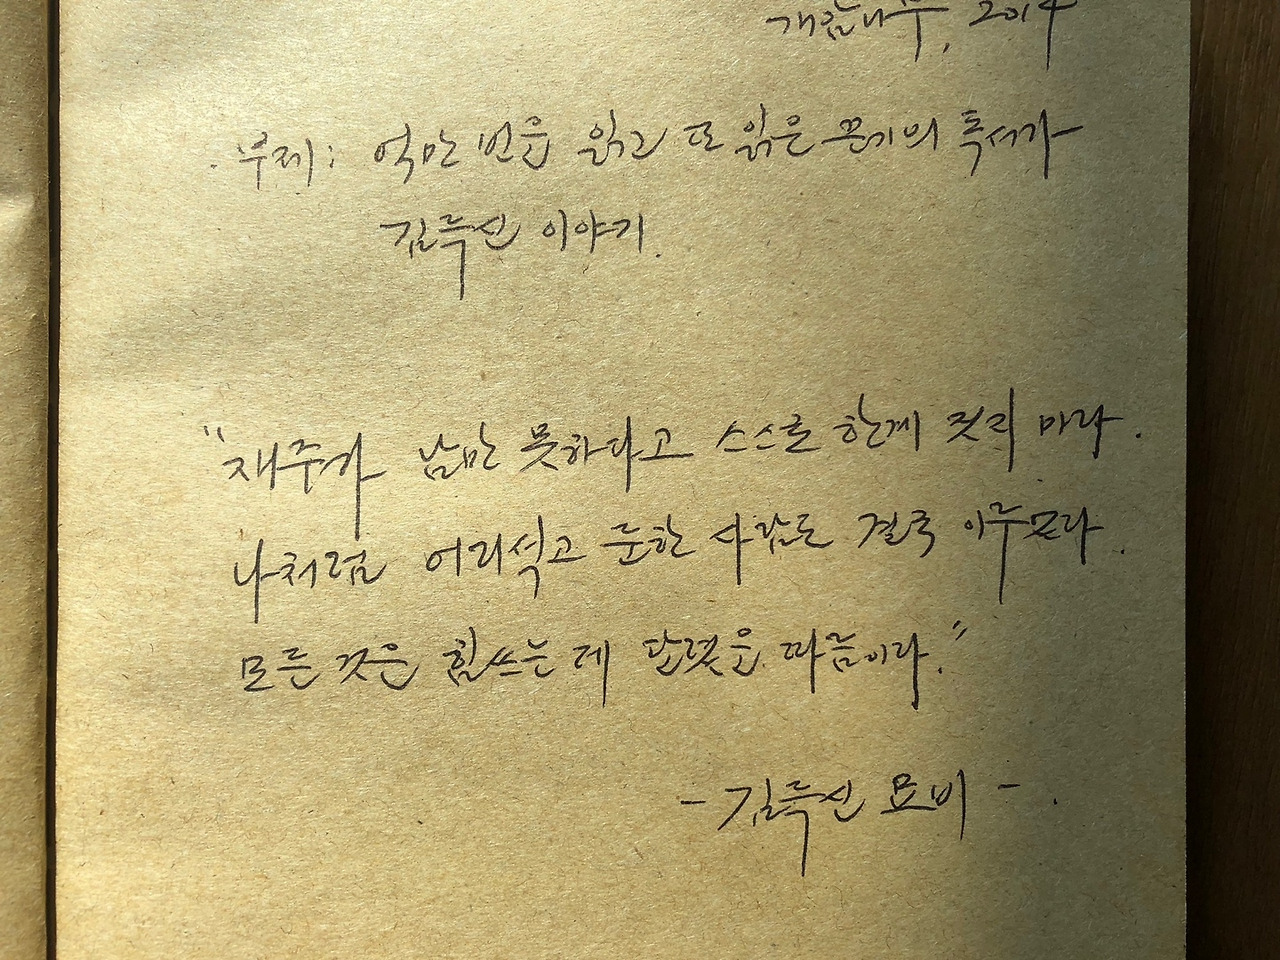 개암나무, 2014
· 부제: 억만 번을 읽고 또 읽은 끈기의 독서가
김득신 이야기.
"재주가 남만 못하다고 스스로 한계 짓지 마라.
나처럼 어리석고 둔한 사람도 결국 이루었다.
모든 것은 힘쓰는 데 달렸을 따름이다."
- 김득신 묘비 - .